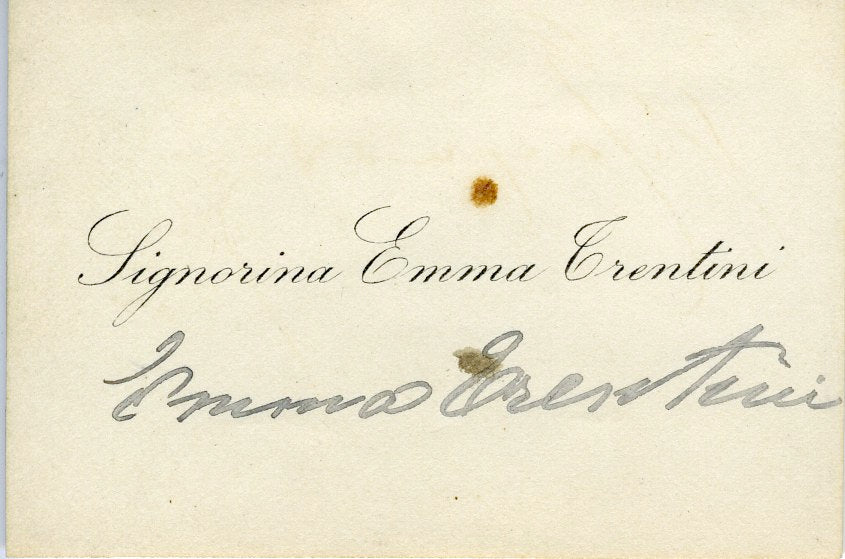 Signorina Emma Trentini
Emma Trentini